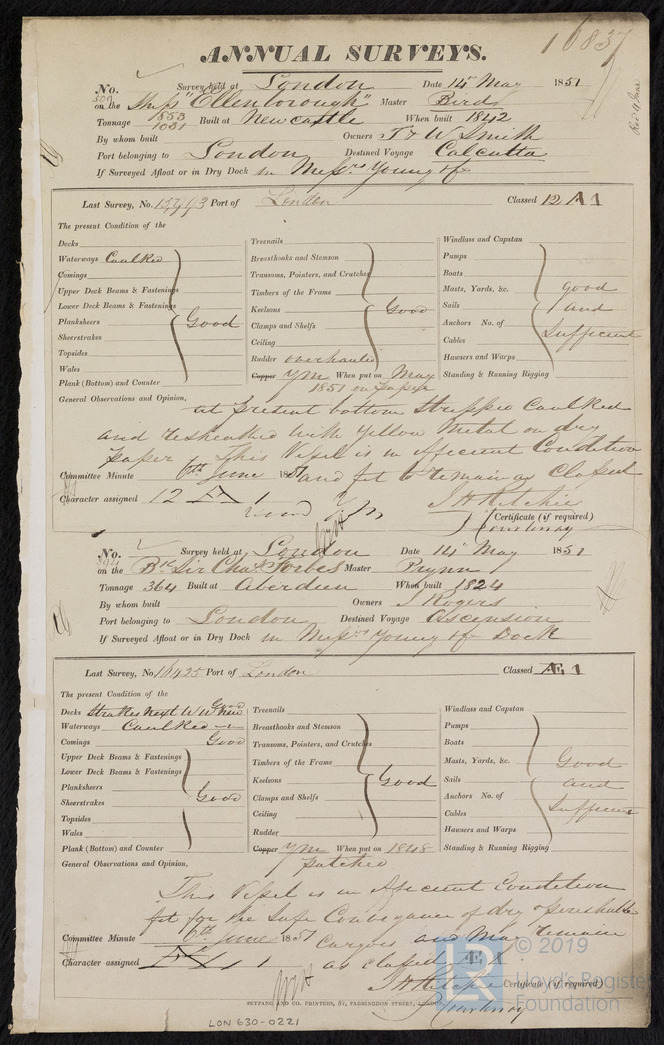 16837
ANNUAL SURVEYS.
No. Survey held at London Date 14 May 1851
on the Ship "Ellenborough" Master Bird
Tonnage 1031 Built at Newcastle When built 1842
By whom built Owners T & W Smith
Port belonging to London Destined Voyage Calcutta
If Surveyed Afloat or in Dry Dock in Messrs Young &
Last Survey, No. Port of London Classed 12 A 1
The present Condition of the
Decks Treenails Windlass and Capstan
Waterways Caulked Breasthooks and Stemson Pumps
Comings Transoms, Pointers, and Crutches Boats
Upper Deck Beams & Fastenings Timbers of the Frame Masts, Yards, &c. good
Lower Deck Beams & Fastenings Keelsons Good Sails and
Planksheers Good Clamps and Shelfs Anchors No. of Sufficient
Sheerstrakes Ceiling Cables
Topsides Rudder overhauled Hawsers and Warps
Wales Copper YM When put on May Standing & Running Rigging
Plank (Bottom) and Counter 1851 on paper
General Observations and Opinion, at present bottom stripped Caulked
and resheathed with Yellow Metal on dry
paper This Vessel is in efficient Condition
Committee Minute 6th June 1851 and fit to remain as Classed
Character assigned 12 A 1 J H Ritchie
Certificate (if required)
J Courtenay
No. Survey held at London Date 14 May 1851
on the Bk Sir Chas Forbes Master Prynn
Tonnage 364 Built at Aberdeen When built 1824
By whom built Owners J Rogers
Port belonging to London Destined Voyage Ascension
If Surveyed Afloat or in Dry Dock in Messrs Young & Dock
Last Survey, No. 16425 Port of London Classed Æ 1
The present Condition of the
Decks Strakes next W W New Good Treenails Windlass and Capstan
Waterways Caulked Breasthooks and Stemson Pumps
Comings Good Transoms, Pointers, and Crutches Boats
Upper Deck Beams & Fastenings Timbers of the Frame Masts, Yards, &c. Good
Lower Deck Beams & Fastenings Keelsons Good Sails and
Planksheers Good Clamps and Shelfs Anchors No. of Sufficient
Sheerstrakes Ceiling Cables
Topsides Rudder Hawsers and Warps
Wales Copper YM When put on 1848 Standing & Running Rigging
Plank (Bottom) and Counter patched
General Observations and Opinion,
This Vessel is in efficient Condition
fit for the Safe Conveyance of dry & perishable
Committee Minute 6th June 1851 Cargoes and May remain
Character assigned Æ 1 as classed Æ 1.
J H Ritchie Certificate (if required)
J Courtenay
SEYFANG AND CO. PRINTERS, 57, FARRINGDON STREET, LONDON
LON 630-0221
© 2019
Lloyd's Register
Foundation